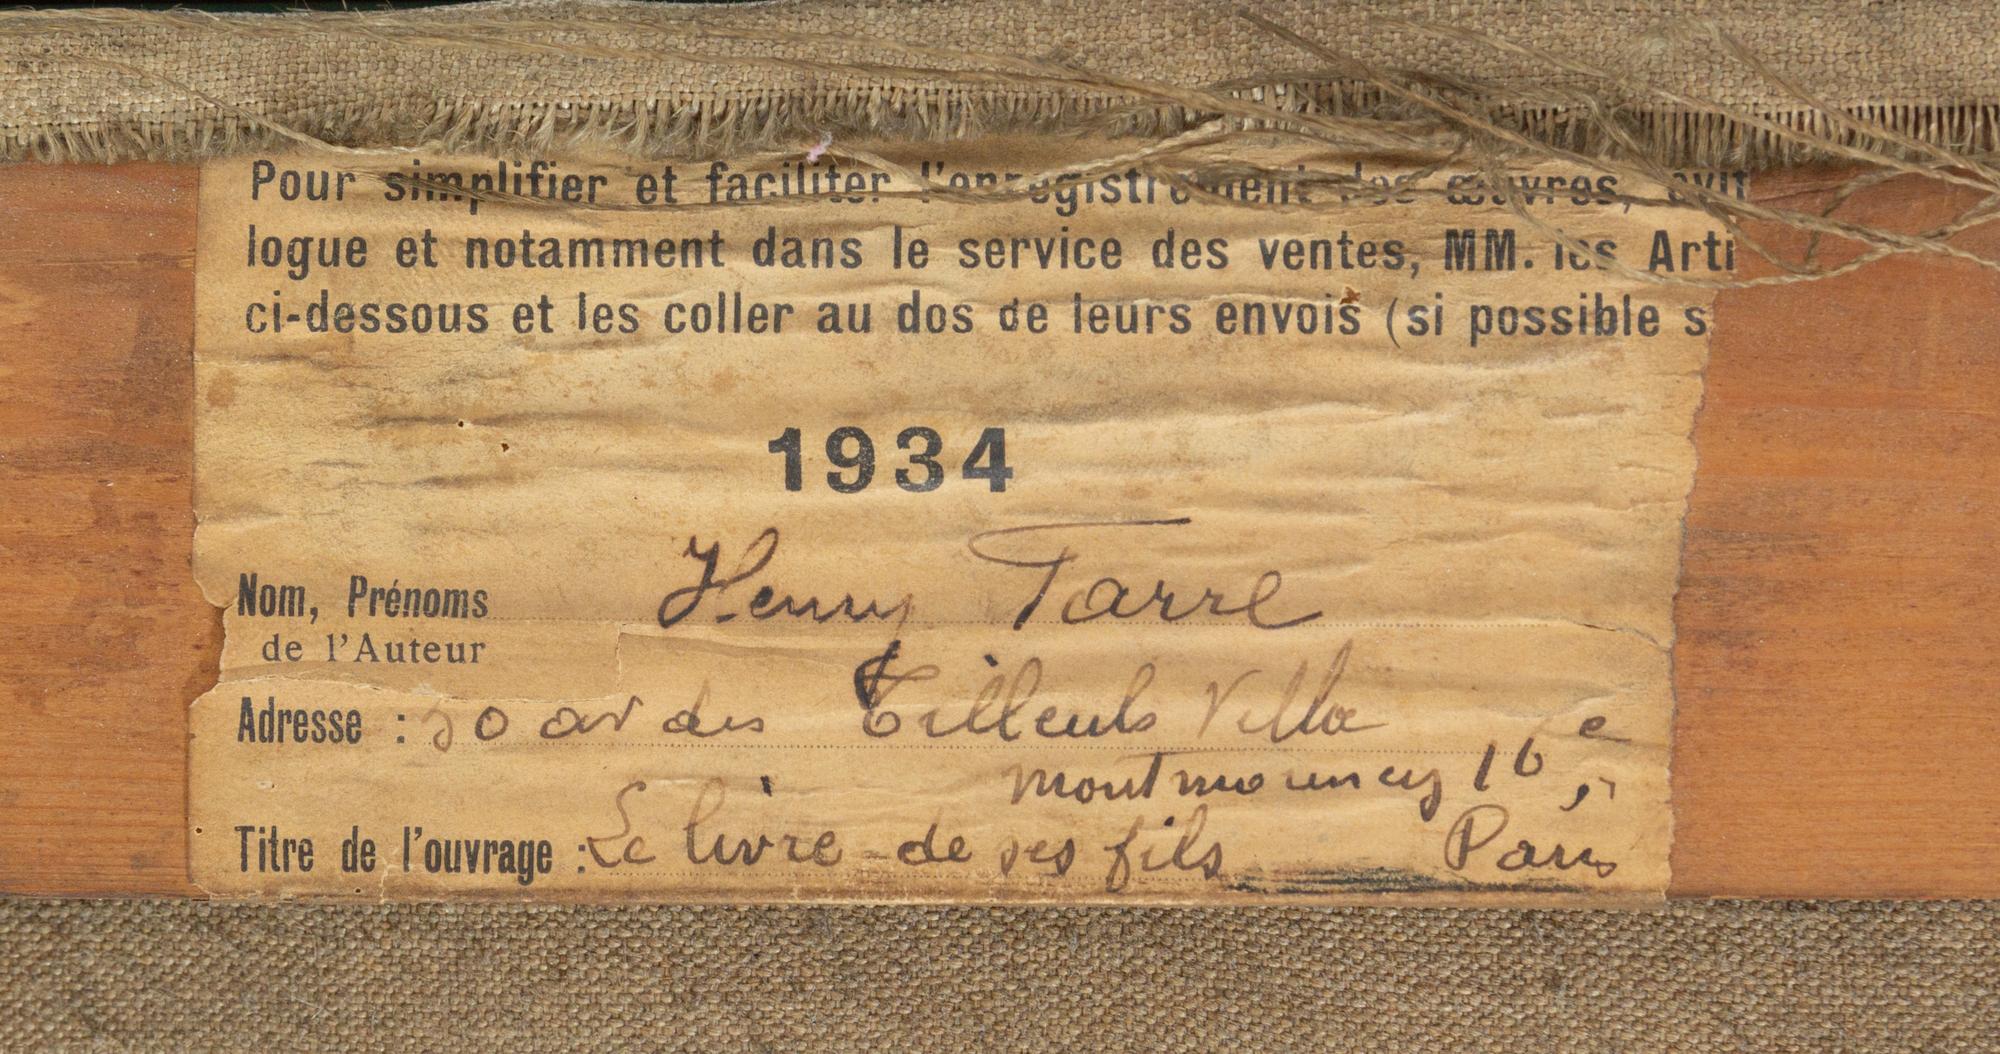 Pour simplifier et faciliter l'enregistrement des œuvres, évit
logue et notamment dans le service des ventes, MM. les Arti
ci-dessous et les coller au dos de leurs envois (si possible s
1934
Nom, Prénoms Henry Tarre
de l'Auteur
Adresse : 30 av des Tilleuls Villa
Montmorency 16e
Titre de l'ouvrage : Le livre de ses fils Paris